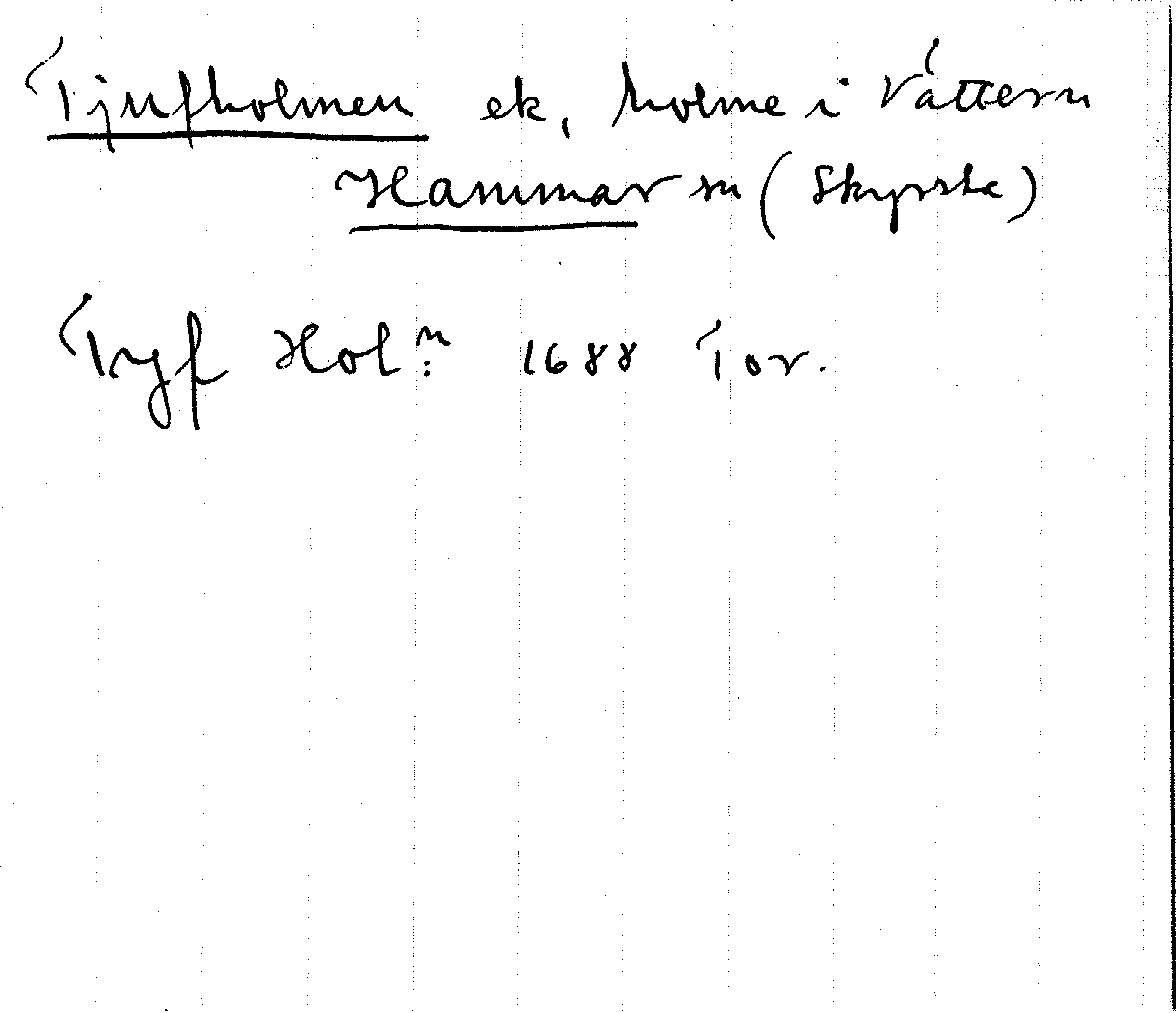 Tjufholmen ek, holme i Vättern
Hammar sn (Skyrsta)
Tyf Hol:n 1688 Tor.